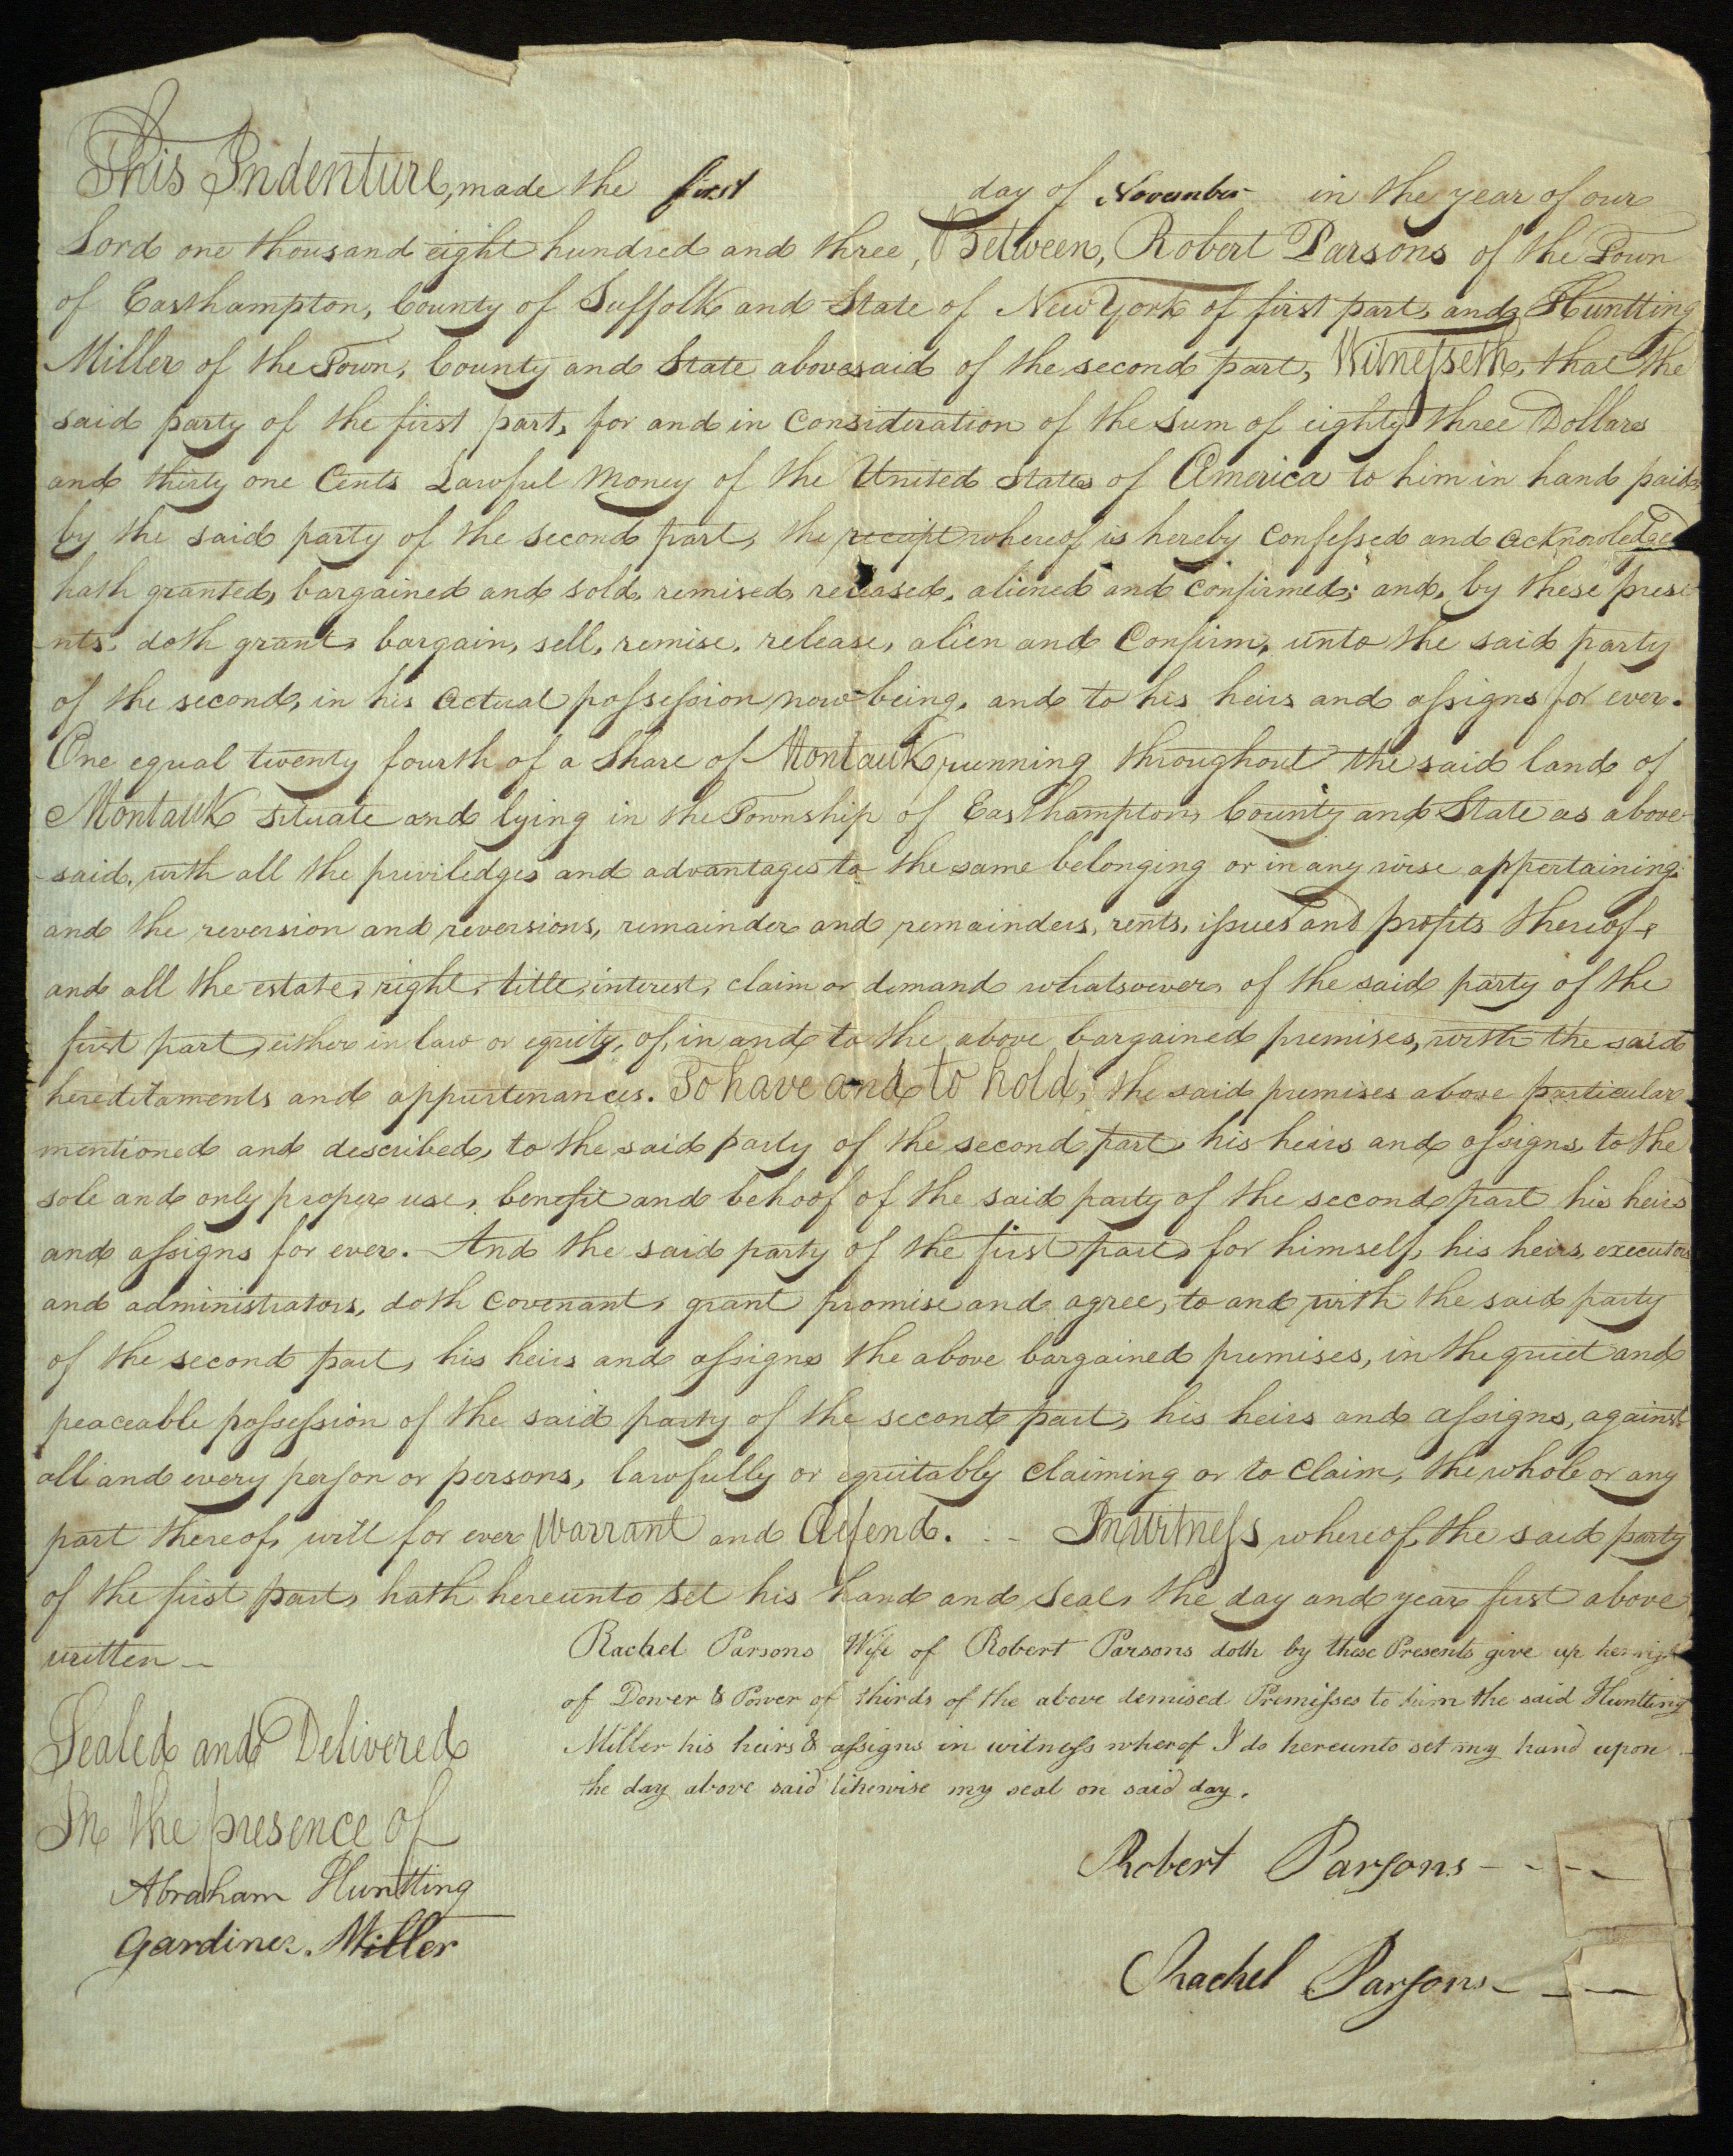 This Indenture, made the first day of November in the year of our
Lord one thousand eight hundred and three, Between, Robert Parsons of the Town
of Easthampton, County of Suffolk and State of New York of first part, and Huntting
Miller of the Town, County and State abovesaid of the second part, Witnesseth, that the
said party of the first part, for and in consideration of the sum of eighty three Dollars
and thirty one Cents Lawful Money of the United States of America to him in hand paid,
by the said party of the second part, the receipt whereof is hereby confessed and acknowledged
hath granted, bargained and sold, remised, released, aliened and confirmed; and, by these prese
nts, doth grant, bargain, sell, remise, release, alien and Confirm, unto the said party
of the second, in his actual possession now being, and to his heirs and assigns for ever.
One equal twenty fourth of a Share of Montauk running throughout the said land of
Montauk situate and lying in the Township of Easthampton, County and State as above
said, with all the priviledges and advantages to the same belonging or in any wise appertaining,
and the reversion and reversions, remainder and remainders, rents, issues and profits thereof,
and all the estate, right, title, interest, claim or demand whatsoever, of the said party of the
first part, either in law or equity, of, in and to the above bargained premises, with the said
hereditaments and appurtenances. To have and to hold, the said premises above particular
mentioned and described, to the said party of the second part, his heirs and assigns, to the
sole and only proper use, benefit and behoof of the said party of the second part his heirs
and assigns for ever. And the said party of the first part, for himself, his heirs, executors
and administrators, doth covenant, grant promise and agree, to and with the said party
of the second part, his heirs and assigns the above bargained premises, in the quiet and
peaceable possession of the said party of the second part, his heirs and assigns, against
all and every person or persons, lawfully or equitably claiming or to claim, the whole or any
part thereof, will for ever Warrant and defend. - - In witness whereof, the said party
of the first part, hath hereunto set his hand and seal, the day and year first above
written -
Rachel Parsons Wife of Robert Parsons doth by these Presents give up her right
of Dower & Power of thirds of the above demised Premisses to him the said Huntting
Miller his heirs & assigns in witness wherof I do hereunto set my hand upon
the day above said likewise my seal on said day.
Sealed and Delivered
In the presence of
Abraham Huntting
Gardiner. Miller
Robert Parsons - - - -
Rachel Parsons - - -